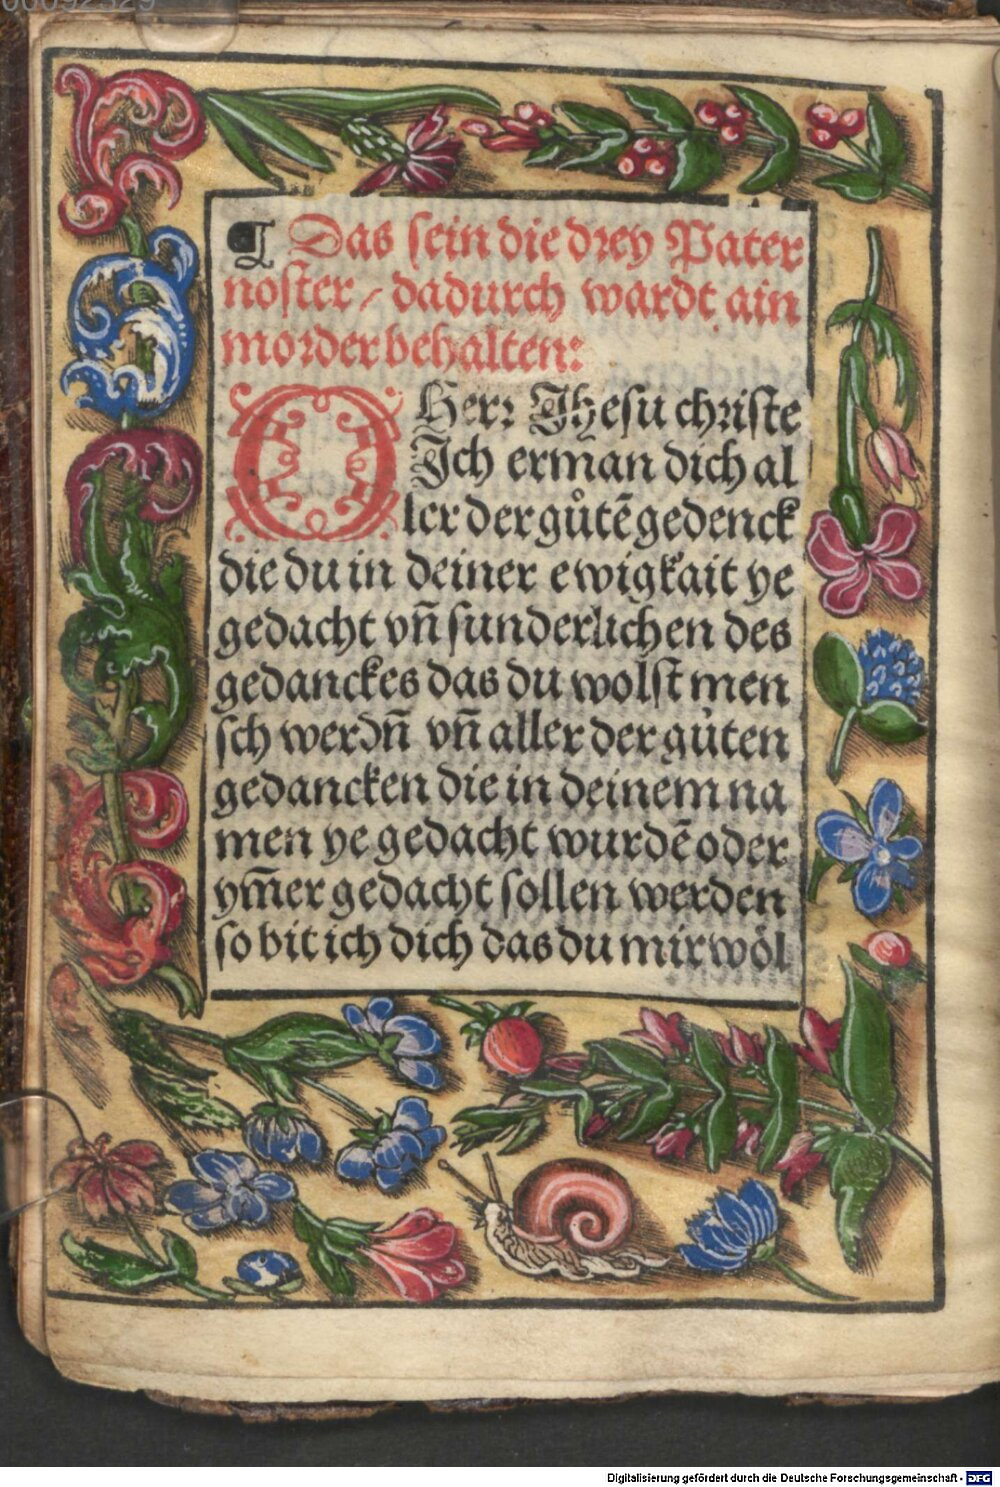 ¶ Das sein die drey Pater
noster / dadurch wardt ain
morder behalten:
O Herr Jhesu christe
Jch erman dich al
ler der gůtē gedenck
die du in deiner ewigkait ye
gedacht vn̄ sunderlichen des
gedanckes das du wolst men
sch werdn̄ vn̄ aller der gůten
gedancken die in deinem na
men ye gedacht wurdē oder
ym̄er gedacht sollen werden
so bit ich dich das du mir wöl
Digitalisierung gefördert durch die Deutsche Forschungsgemeinschaft - DFG